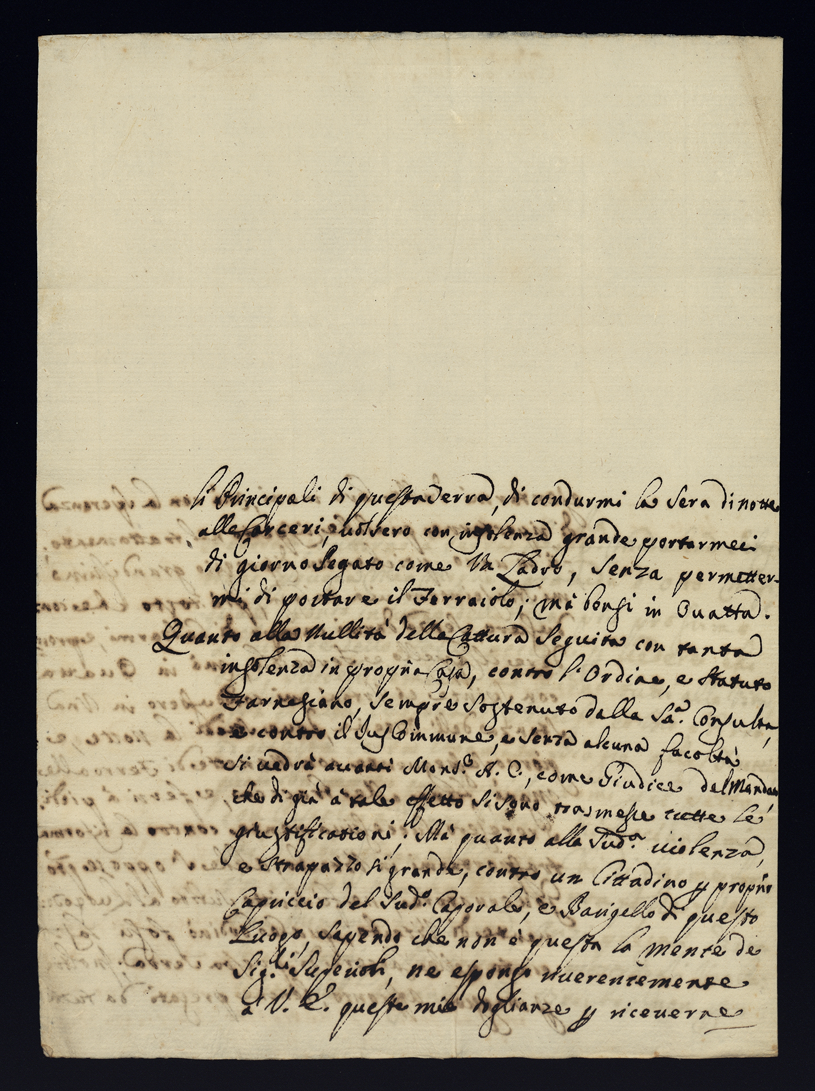 li Principali di questa Terra, di condurmi la sera di notte
alle Carceri, volsero con insolenza grande portarmeci
di giorno legato come Un Ladro, senza permetter-
mi di portare il Ferraiolo; mà bensi in Ouatta.
Quanto alla Nullità della Cattura seguita con tanta
insolenza in propria Casa, contro l'Ordine, e Statuto
Farnesiano, sempre sostenuto dalla Sa. Consulta,
e contro il Jus Commune, e senza alcuna facoltà
si vedrà avanti Mons.r A. C., come Giudice del Mandato
che di già à tale effetto si sono trasmesse tutte le
giustificationi; Mà quanto alla Sud.a violenza,
e strapazzo si grande, contro un Cittadino p proprio
Capriccio del Sud.o Caporale, e Barigello di questo
Luogo, sapendo che non è questa la mente de
Sig.ri Superiori, ne espongo riverentemente
a V. E. queste mie doglianze p riceverne